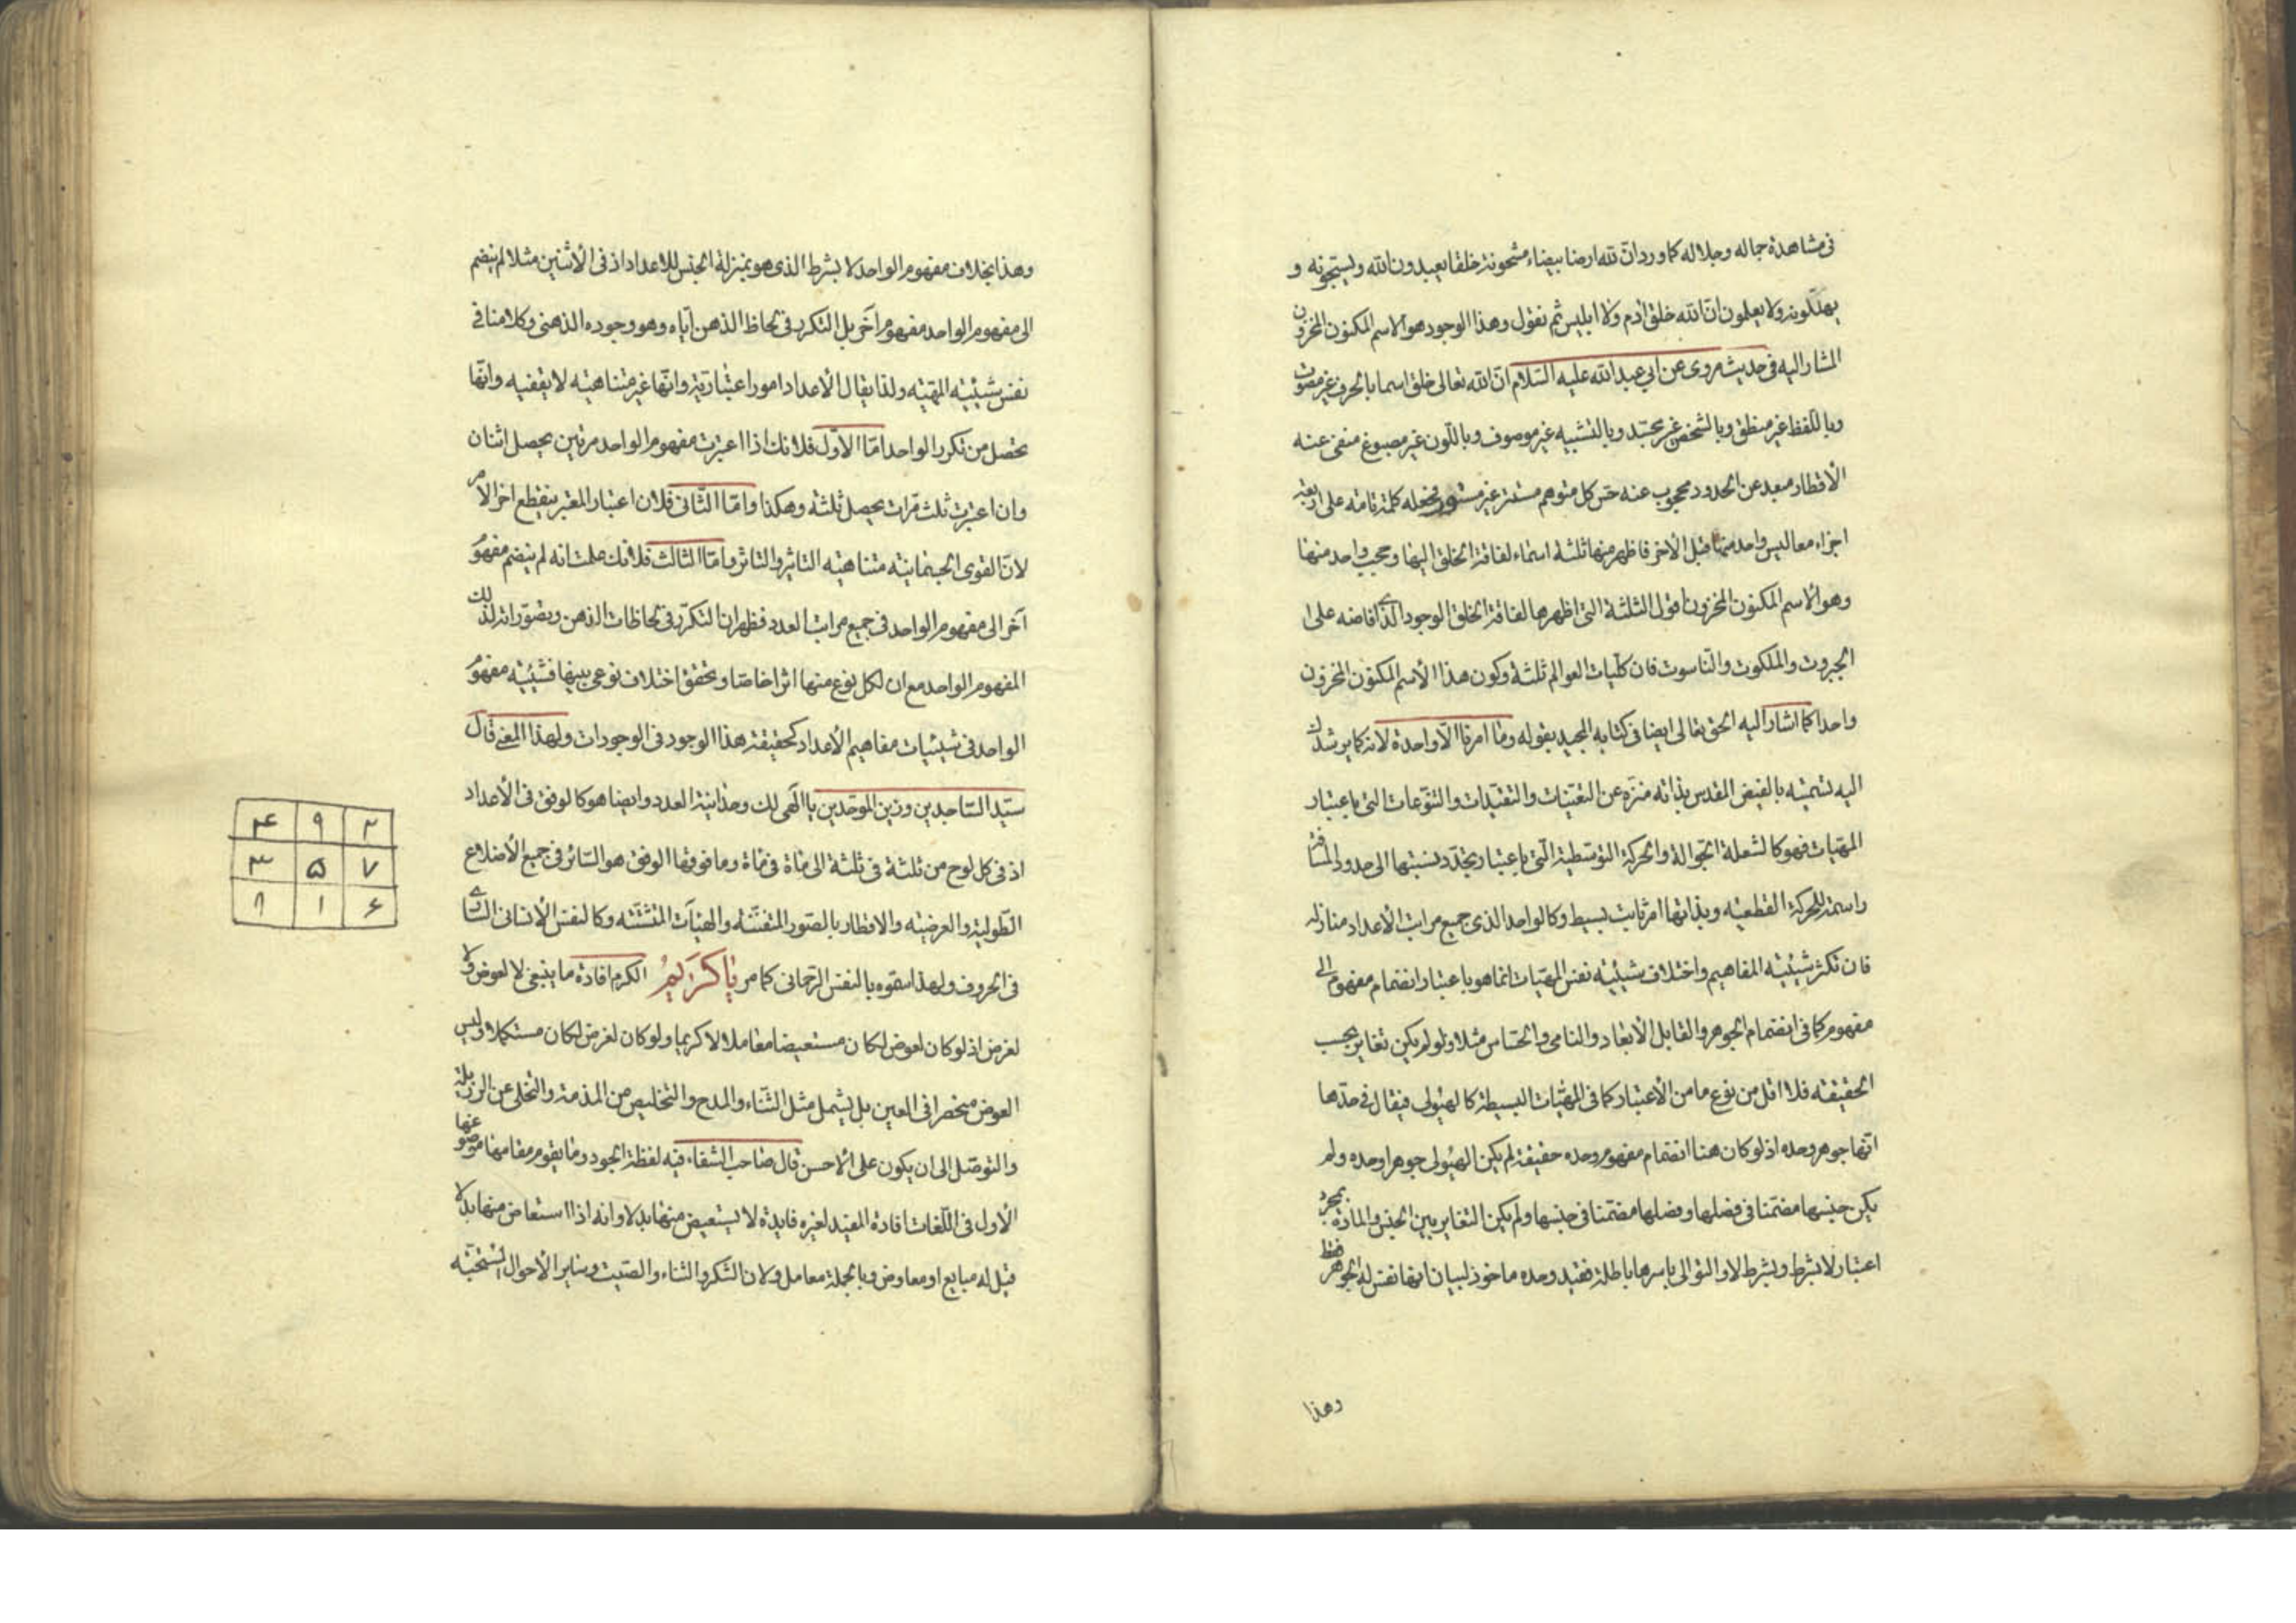 فى مشاهدة جماله وجلاله كما ورد ان لله ارضا بيضاء مشحونة خلقا يعبدون الله ويسبحونه و
يهللونه ولا يعلمون ان الله خلق آدم ولا ابليس ثم نقول وهذا الوجود هو الاسم المكنون المخزون
المشار اليه فى حديث مروى عن ابي عبد الله عليه السلام ان الله تعالى خلق اسما بالحروف غير مصوت
وباللفظ غير منطق وبالشخص غير مجسد وبالتشبيه غير موصوف وباللون غير مصبوغ منفى عنه
الأقطار مبعد عن الحدود محجوب عنه حس كل متوهم مستتر غير مستور فجعله كلمة تامة على اربعة
اجزاء معا ليس واحد منها قبل الآخر فاظهر منها ثلثة اسماء لفاقة الخلق اليها وحجب واحد منها
وهو الاسم المكنون المخزون اقول الثلثة التى اظهرها لفاقة الخلق الوجود الذى افاضه على
الجبروت والملكوت والناسوت فان كليات العوالم ثلثة وكون هذا الأسم المكنون المخزون
واحدا كما اشار اليه الحق تعالى ايضا فى كتابه المجيد بقوله وما امرنا الا واحدة لانه كما يرشدك
اليه تسميته بالفيض المقدس بذاته منزه عن التعينات والتقيدات والتنوعات التى باعتبار
المهيات فهو كالشعلة الجوالة والحركة التوسطية التى باعتبار تجدد نسبتها الى حدود المسافة
راسمة للحركة القطعيه وبذاتها امر ثابت بسيط وكالواحد الذى جميع مراتب الأعداد منازله
فان تكثر شيئيته المفاهيم واختلاف شيئيته نفس المهيات انما هو باعتبار انضمام مفهوم الى
مفهوم كما فى انضمام الجوهر والقابل الأبعاد والنامى والحساس مثلا ولو لم يكن تغاير بحسب
الحقيقة فلا اقل من نوع ما من الأعتبار كما فى المهيات البسيطة كالهيولى فيقال فى حدها
انها جوهر وحده اذ لو كان هنا انضمام مفهوم وحده حقيقة لم يكن الهيولى جوهرا وحده ولم
يكن جنسها مضمنا فى فصلها وفصلها مضمنا فى جنسها ولم يكن التغاير بين الجنس والمادة بمجرد
اعتبار لا بشرط وبشرط لا والتوالى باسرها باطلة فقيد وحده ماخوذ لبيان انها نفس له الجوهر فقط
وهذا
وهذا بخلاف مفهوم الواحد لا بشرط الذى هو بمنزلة الجنس للاعداد اذ فى الأثنين مثلا لم ينضم
الى مفهوم الواحد مفهوم آخر بل التكرر فى لحاظ الذهن اياه وهو وجوده الذهنى وكلامنا فى
نفس شيئيته المهيته ولذا يقال الأعداد امور اعتبارية وانها غير متناهيته لا يقفيه وانها
تحصل من تكرر الواحد اما الأول فلانك اذا اعتبرت مفهوم الواحد مرتين يحصل اثنان
وان اعتبرت ثلث مرات يحصل ثلثة وهكذا واما الثانى فلان اعتبار المعتبر ينقطع اخر الامر
لان القوى الجسمانية متناهيته التاثير والتاثر واما الثالث فلانك علمت انه لم ينضم مفهوم
آخر الى مفهوم الواحد فى جميع مراتب العدد فظهر ان التكرر فى لحاظات الذهن وتصوراته لذلك
المفهوم الواحد مع ان لكل نوع منها اثرا خاصا وتحقق اختلاف نوعى بينها فشيئيته مفهوم
الواحد فى شيئيات مفاهيم الأعداد كحقيقة هذا الوجود فى الوجودات ولهذا المعنى قال
سيد الساجدين وزين الموحدين يا الهى لك وحدانية العدد وايضا هو كالوفق فى الأعداد
اذ فى كل لوح من ثلثة فى ثلثة الى مأة فى مأة وما فوقها الوفق هو السائر فى جميع الأضلاع
الطولية والعرضيته والاقطار بالصور المتفننة والهيآت المتشتته وكالنفس الأنسانى السارى
فى الحروف ولهذا سموه بالنفس الرحمانى كما مر يا كريم الكرم افادة ما ينبغى لا لعوض ولا
لغرض اذ لو كان لعوض لكان مستعيضا معاملا لا كريما ولو كان لغرض لكان مستكملا وليس
العوض منحصرا فى العين بل يشمل مثل الثناء والمدح والتخليص من المذمة والتخلى عن الرذيلة
والتوصل الى ان يكون على الاحسن قال صاحب الشفاء فيه لفظة الجود وما يقوم مقامها موضوعها
الأول فى اللغات افادة المفيد لغيره فايدة لا يستعيض منها بدلا وانه اذا استعاض منها بدلا
قيل له مبايع او معاوض وبالجملة معامل ولان الشكر والثناء والصيت وساير الأحوال المستحسنة
۴ ۹ ۲
۳ ۵ ۷
۸ ۱ ۶